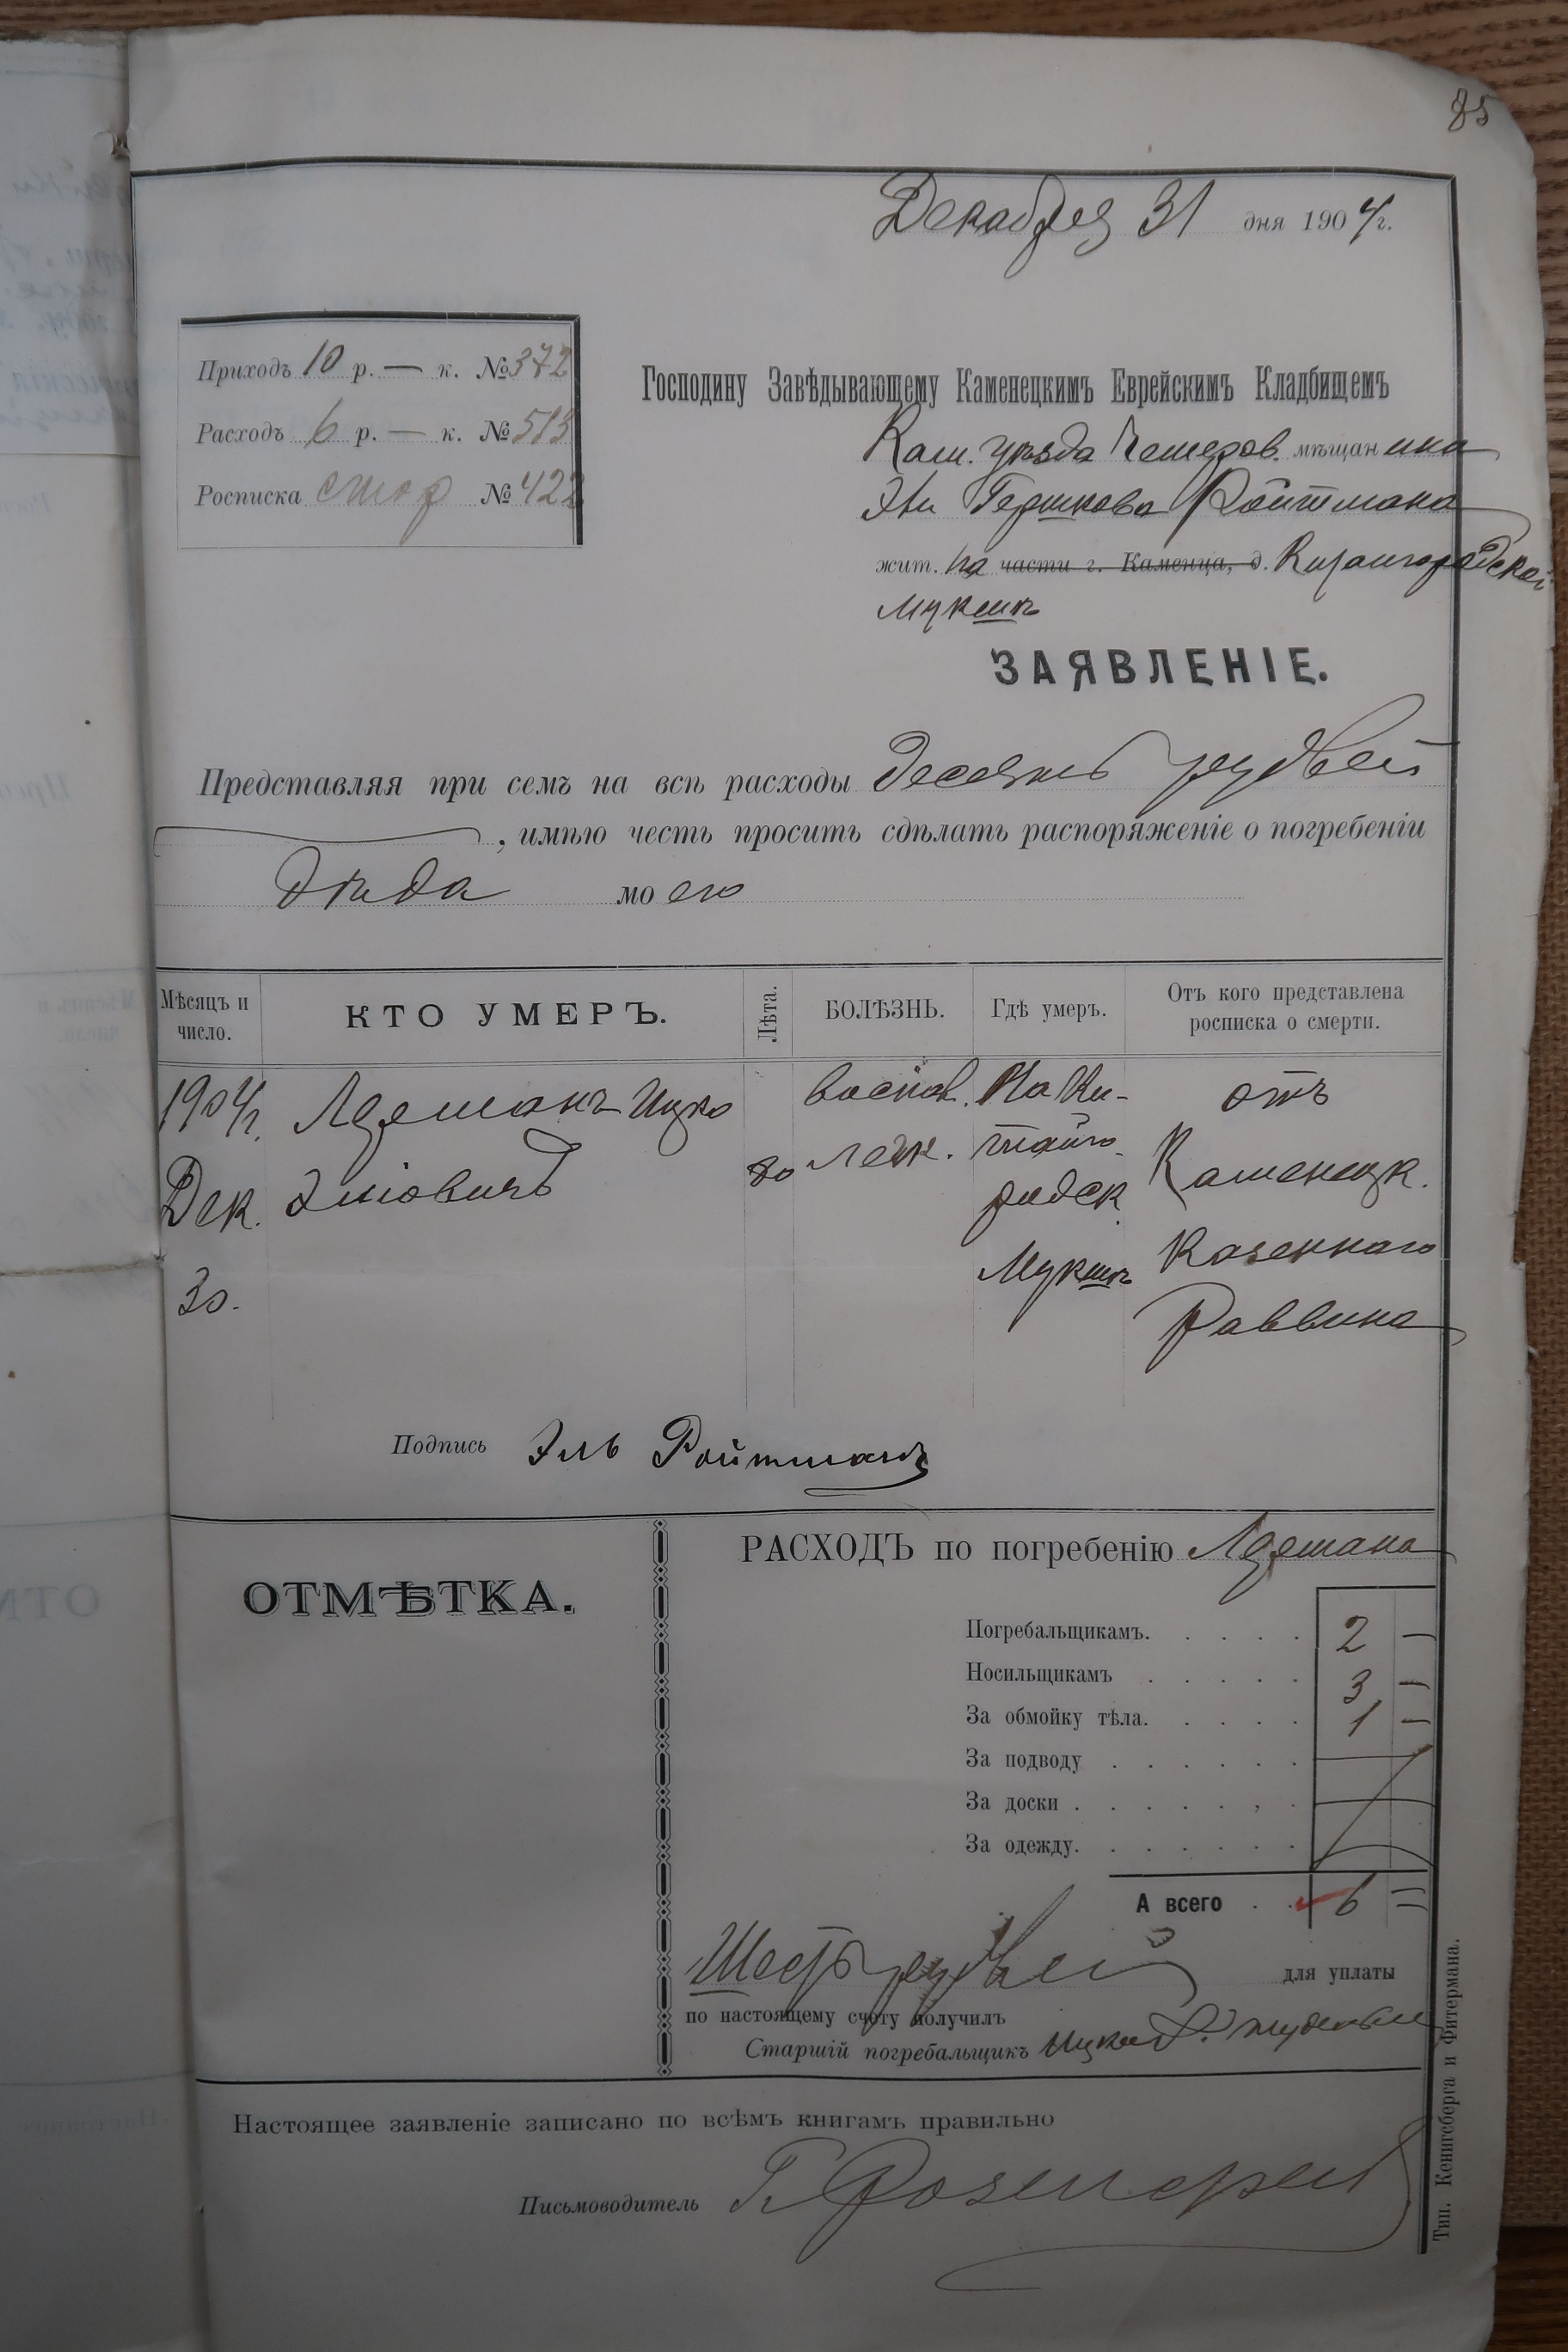 85
Декабря 31 дня 1904 г.
Приходъ 10 р. — к. № 372
Расходъ 6 р. — к. № 513
Росписка стор № 422
Господину Завѣдывающему Каменецкимъ Еврейскимъ Кладбищемъ
Кам. уѣзда Чемеров. мѣщанина
Эли Гершкова Ройтмана
жит. на части г. Каменца, д. Китайгородской
Мукшѣ
ЗАЯВЛЕНІЕ.
Представляя при семъ на всѣ расходы десять рублей
, имѣю честь просить сдѣлать распоряженіе о погребеніи
дѣда моего
Мѣсяцъ и число.
КТО УМЕРЪ.
Лѣта.
БОЛѢЗНЬ.
Гдѣ умеръ.
Отъ кого представлена росписка о смерти.
1904 г.
Дек.
30.
Ицко
80
воспал.
легк.
На Ки-
тайго-
родск.
Мукшѣ
отъ
Каменецк.
Казеннаго
Раввина
Подпись Эль Ройтманъ
ОТМѢТКА.
РАСХОДЪ по погребенію
Погребальщикамъ. 2 —
Носильщикамъ 3 —
За обмойку тѣла. 1 —
За подводу
За доски
За одежду.
А всего 6 =
Шесть рублей для уплаты
по настоящему счету получилъ
Старшій погребальщикъ
Настоящее заявленіе записано по всѣмъ книгамъ правильно
Письмоводитель
Тип. Кенигсберга и Фитермана.